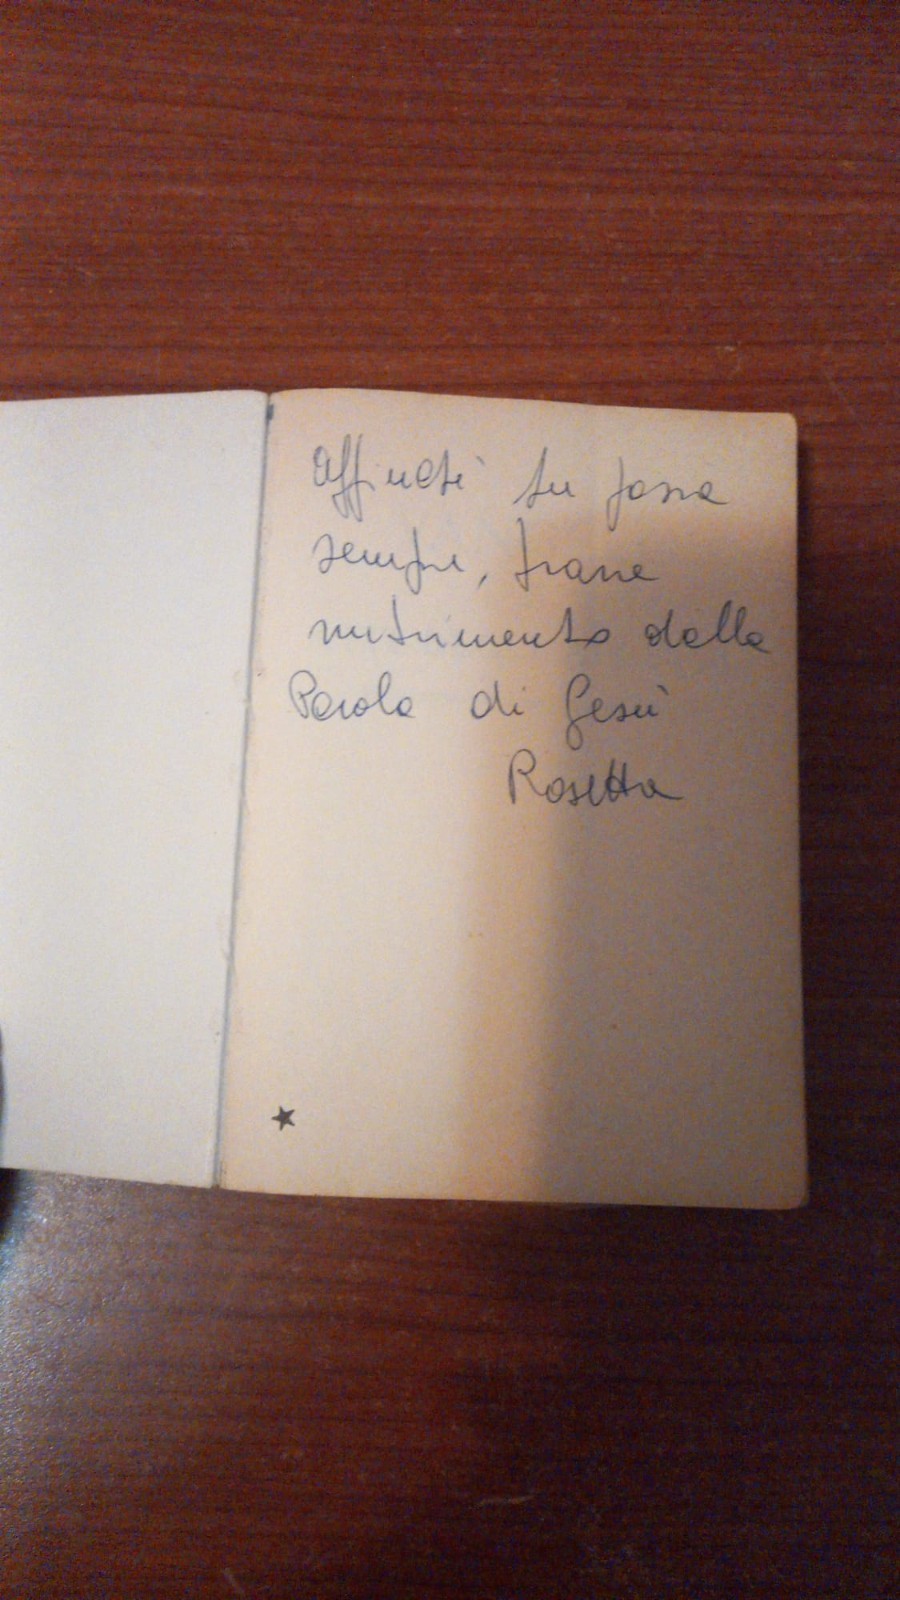 Affinché tu possa
sempre, trarre
nutrimento dalla
Parola di Gesù
Rosetta